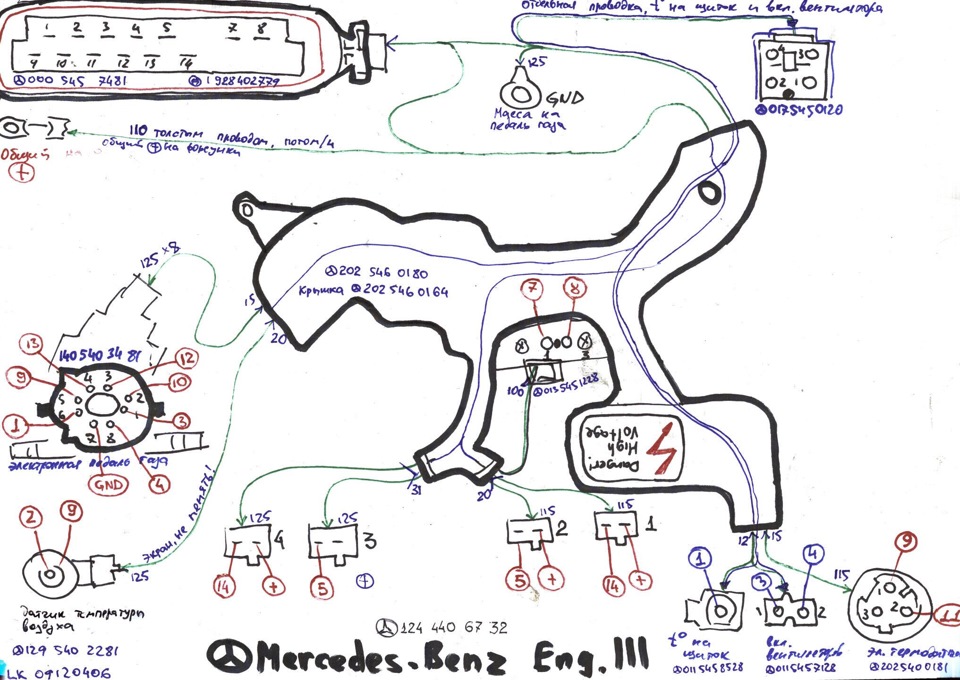 отдельная проводка, t° на щиток и вкл. вентилятора
1 2 3 4 5 7 8
9 10 11 12 13 14
000 545 7481
1928402779
125
GND
Масса на
педаль газа
4 3
2 1
0175450120
110 толстым проводом, потом/ч
общий + на форсунки
Общий
+
125 × 8
15
20
202 546 0180
крышка 202 546 0164
7 8
1 3
100
0135451228
140 540 34 81
13 12
9 10
1 3
GND 4
4 3
5 2
6 1
7 8
электронная педаль газа
Danger!
High
Voltage
экран, не пенять!
31
20
125 125 115 115
4 3 2 1
14 + 5 + 5 + 14 +
2 9
125
датчик температуры
воздуха
129 540 2281
LK 09120406
12 15
115
1 3 4 9
1 2
1
3 2
11
t° на
щиток
0115458528
вкл.
вентилятора
0115457128
эл. термодатчик
2025400181
124 440 67 32
Mercedes-Benz Eng. III